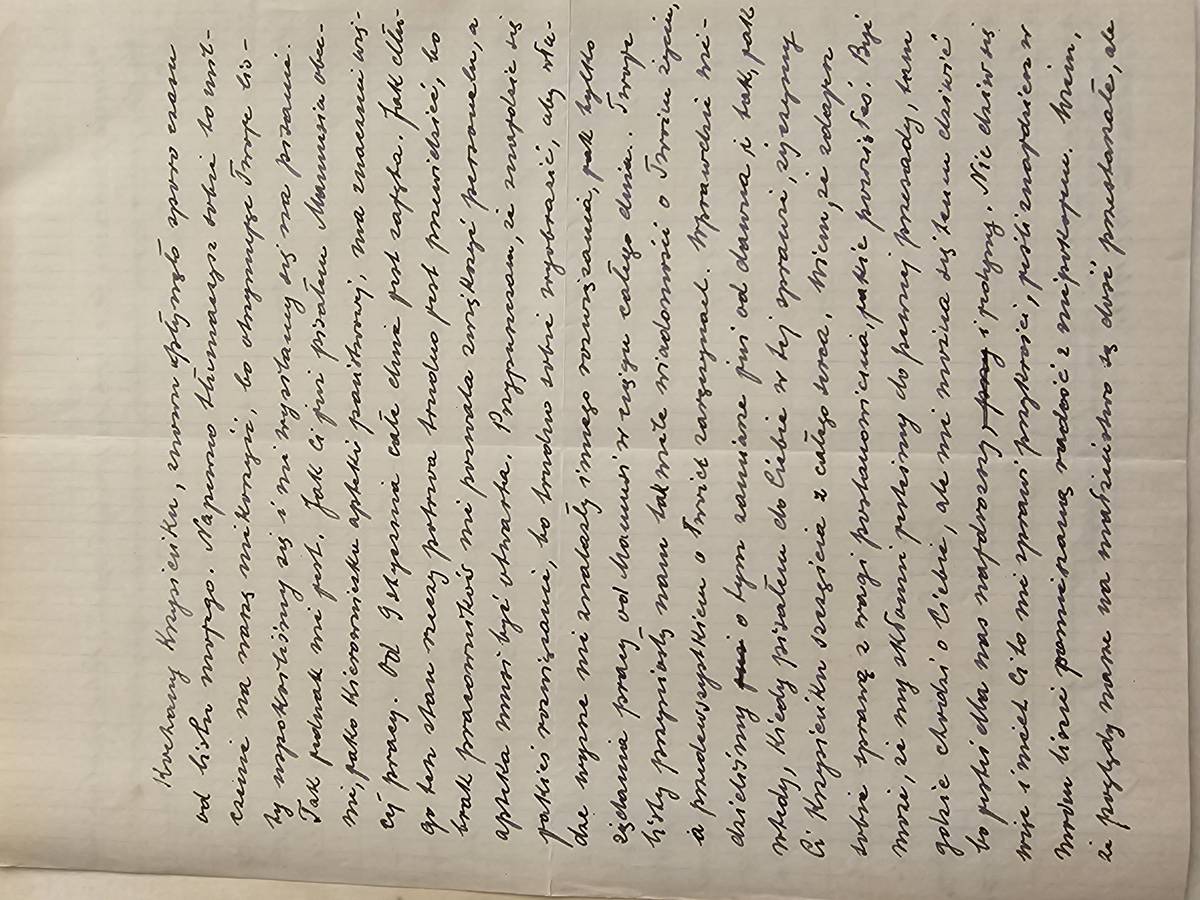 Kochany Krzysieńku, znowu upłynęło sporo czasu
od listu mojego. Na pewno tłumaczysz sobie to mil-
czenie na naszą niekorzyść, bo otrzymując Twoje lis-
ty uspokoiliśmy się i nie wysilamy się na pisanie.
Tak jednak nie jest. Jak Ci już pisałam Mamusia obec-
nie, jako kierowniczka apteki państwowej, ma znacznie wię-
cej pracy. Od 9 stycznia całe dnie jest zajęta. Jak dłu-
go ten stan rzeczy potrwa trudno jest przewidzieć, bo
brak pracowników nie pozwala zwiększyć personelu, a
apteka musi być otwarta. Przypuszczam, że znajdzie się
jakieś rozwiązanie, bo trudno sobie wyobrazić, aby wła-
dze wyższe nie znalazły innego rozwiązania, jak tylko
żądania pracy od Mamusi w ciągu całego dnia. Twoje
listy przyniosły nam tak wiele wiadomości o Twoim życiu,
a przedewszystkiem o Twoich zaręczynach. Wprawdzie wie-
dzieliśmy o tym zamiarze już od dawna i tak, jak
wtedy, kiedy pisałem do Ciebie w tej sprawie, życzymy
Ci Krzysieńku szczęścia z całego serca. Wiem, że zdajesz
sobie sprawę z wagi postanowienia, jakie powziąłeś. Być
może, że my skłonni jesteśmy do pewnej przesady, tam
gdzie chodzi o Ciebie, ale nie można się temu dziwić
bo jesteś dla nas najdroższy i jedyny. Nie dziw się
więc i niech Ci to nie sprawi przykrości, jeśli znajdziesz w
moim liście pomieszaną radość z niepokojem. Wiem,
że poglądy nasze na małżeństwo są dość przestarzałe, ale